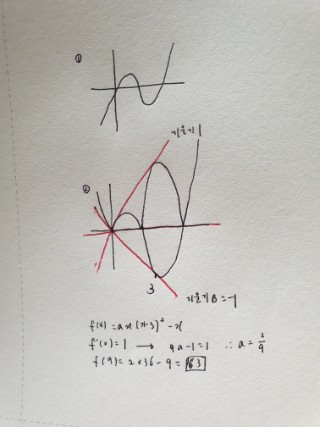 ①
기울기 1
②
3
기울기 -1
f(x) = ax(x-3)² - x
f'(0) = 1 → 9a-1=1 ∴ a = 2/9
f(9) = 2×36 - 9 = 63